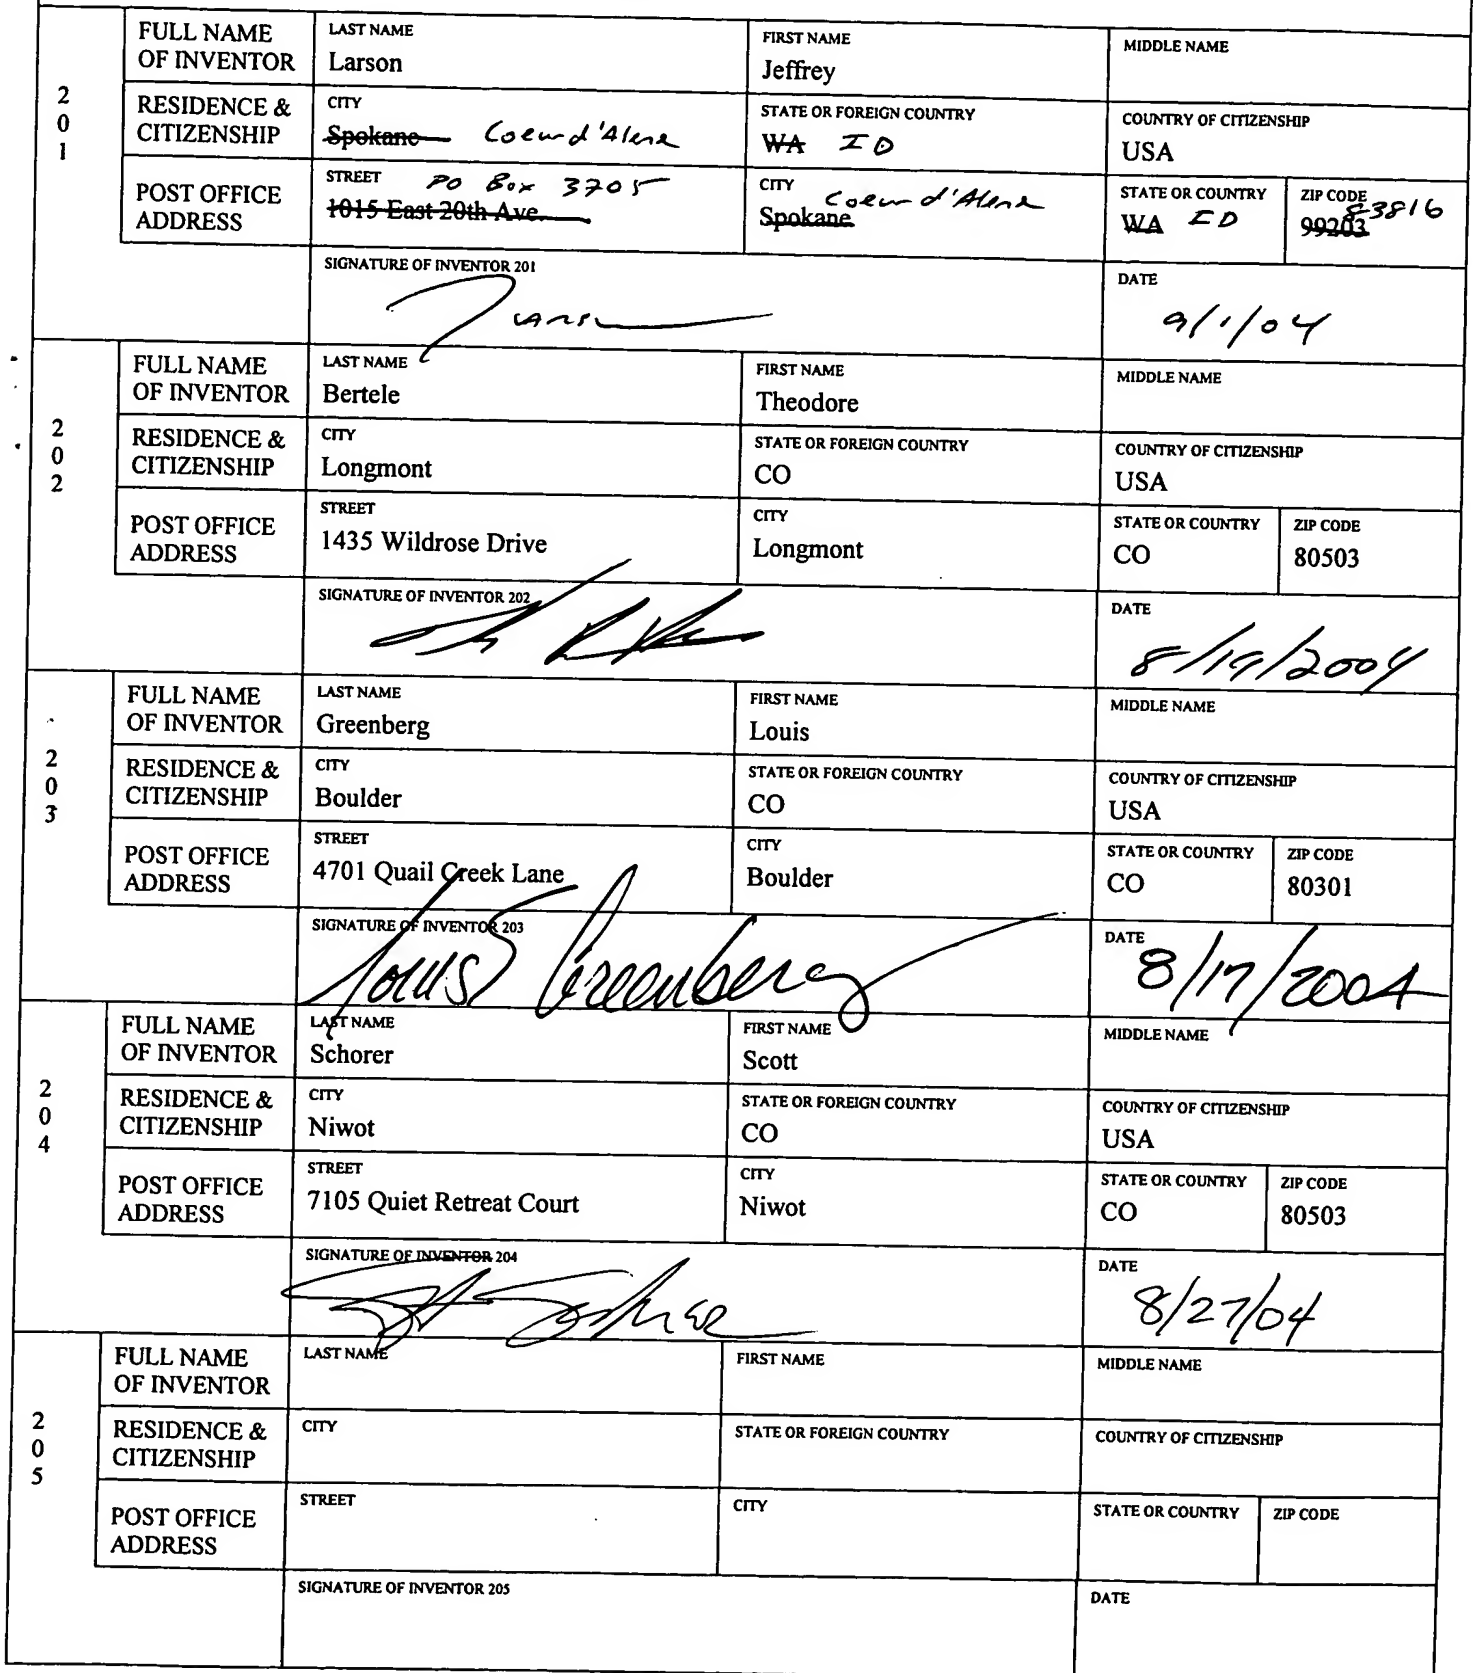 2
0
1
FULL NAME OF INVENTOR
LAST NAME
Larson
FIRST NAME
Jeffrey
MIDDLE NAME
RESIDENCE & CITIZENSHIP
CITY
Spokane Coeur d'Alene
STATE OR FOREIGN COUNTRY
WA ID
COUNTRY OF CITIZENSHIP
USA
POST OFFICE ADDRESS
STREET PO Box 3705
1015 East 20th Ave.
CITY Coeur d'Alene
Spokane
STATE OR COUNTRY
WA ID
ZIP CODE 83816
99203
SIGNATURE OF INVENTOR 201
Larson
DATE
9/1/04
2
0
2
FULL NAME OF INVENTOR
LAST NAME
Bertele
FIRST NAME
Theodore
MIDDLE NAME
RESIDENCE & CITIZENSHIP
CITY
Longmont
STATE OR FOREIGN COUNTRY
CO
COUNTRY OF CITIZENSHIP
USA
POST OFFICE ADDRESS
STREET
1435 Wildrose Drive
CITY
Longmont
STATE OR COUNTRY
CO
ZIP CODE
80503
SIGNATURE OF INVENTOR 202
DATE
8/19/2004
2
0
3
FULL NAME OF INVENTOR
LAST NAME
Greenberg
FIRST NAME
Louis
MIDDLE NAME
RESIDENCE & CITIZENSHIP
CITY
Boulder
STATE OR FOREIGN COUNTRY
CO
COUNTRY OF CITIZENSHIP
USA
POST OFFICE ADDRESS
STREET
4701 Quail Creek Lane
CITY
Boulder
STATE OR COUNTRY
CO
ZIP CODE
80301
SIGNATURE OF INVENTOR 203
Louis Greenberg
DATE
8/17/2004
2
0
4
FULL NAME OF INVENTOR
LAST NAME
Schorer
FIRST NAME
Scott
MIDDLE NAME
RESIDENCE & CITIZENSHIP
CITY
Niwot
STATE OR FOREIGN COUNTRY
CO
COUNTRY OF CITIZENSHIP
USA
POST OFFICE ADDRESS
STREET
7105 Quiet Retreat Court
CITY
Niwot
STATE OR COUNTRY
CO
ZIP CODE
80503
SIGNATURE OF INVENTOR 204
DATE
8/27/04
2
0
5
FULL NAME OF INVENTOR
LAST NAME
FIRST NAME
MIDDLE NAME
RESIDENCE & CITIZENSHIP
CITY
STATE OR FOREIGN COUNTRY
COUNTRY OF CITIZENSHIP
POST OFFICE ADDRESS
STREET
CITY
STATE OR COUNTRY
ZIP CODE
SIGNATURE OF INVENTOR 205
DATE